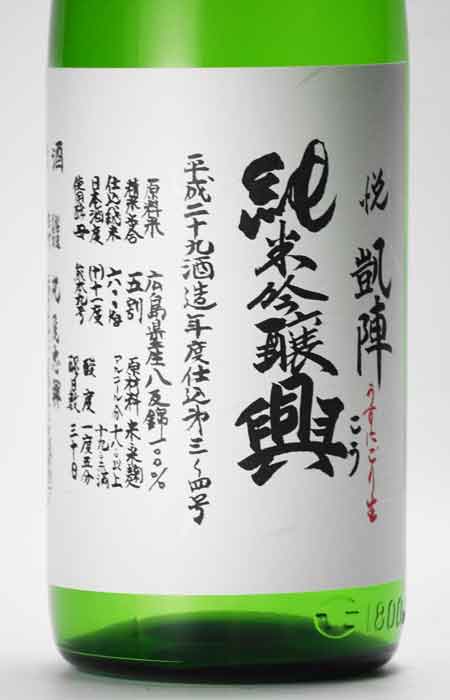 悦 凱陣
うすにごり生
純米吟醸 興
こう
平成二十九酒造年度仕込第三〜四号
原料米 広島県産八反錦一〇〇%
精米歩合 五割 原材料 米・米麹
アルコール分 十八以上十九・三満
日本酒度 (+)十一度 酸度 一度五分
使用酵母 熊本九号 醪日数 三十日
酒
1800